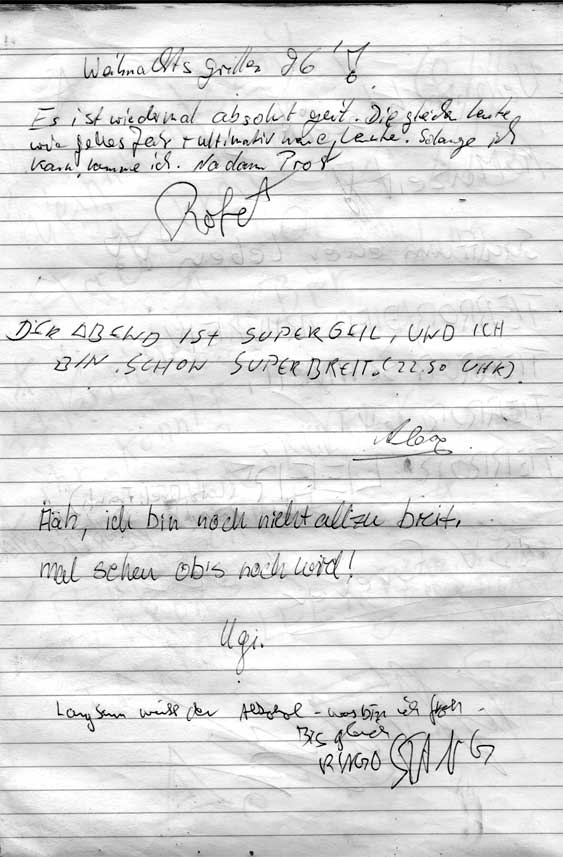 Weihnachts griller 96'!
Es ist wiedermal absolut geil. Die gleichen Leute
wie jedes Jahr + ultimativ Leute. Solange ich
kann, komme ich. Na dann Prost
DER ABEND IST SUPERGEIL, UND ICH
BIN SCHON SUPERBREIT. (22.50 UHR)
Häh, ich bin noch nicht allzu breit,
mal sehen obis noch wird!
Ugi.
Langsam wirkt der Alkohol - was bin ich froh -
Bis gleich
RINGO